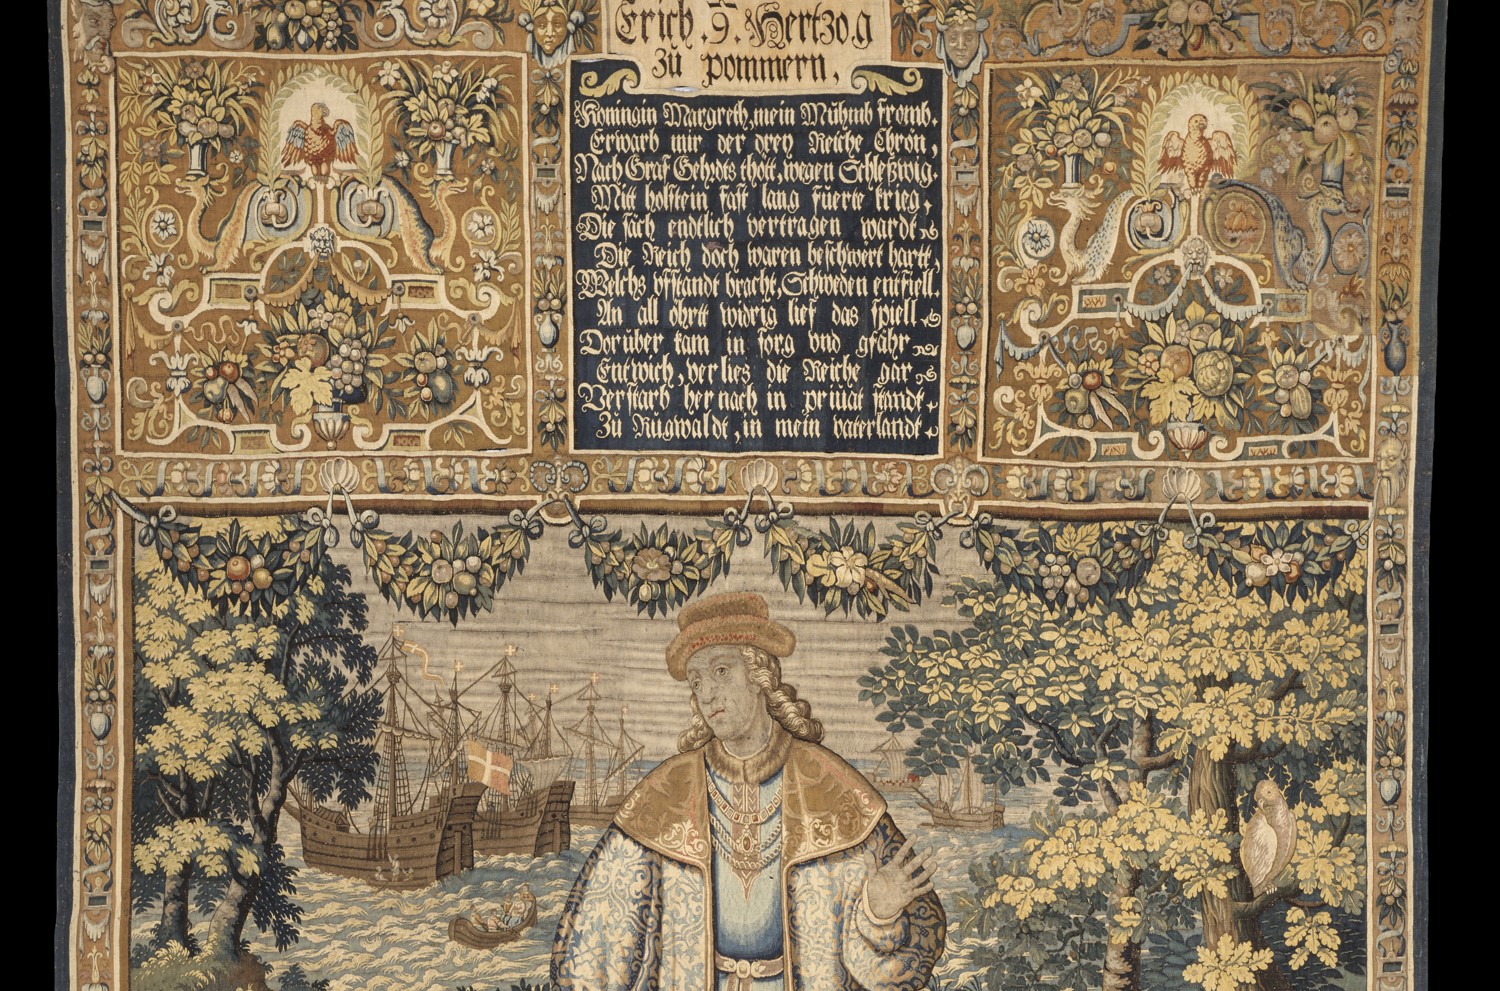 Erich .9. Hertzog
zů pommern,
Koningin Margreth, mein Můhmb fromb,
Erwarb mir der drey Reiche Chrön,
Nach Graf Gehrdts thött, wegen Schleßwig.
Mitt holstein fast lang füerte krieg,
Die sach endtlich vertragen wardt
Die Reich doch waren beschwert hartt,
Welchs vfstandt bracht, Schweden entfiell.
An all öhrtt widrig lief das spiell
Dorüber kam in sorg vnd gfähr
Entwich, verlies die Reiche gar
Verstarb hernach in priuat standt
Zů Rügwaldt, in mein vaterlandt